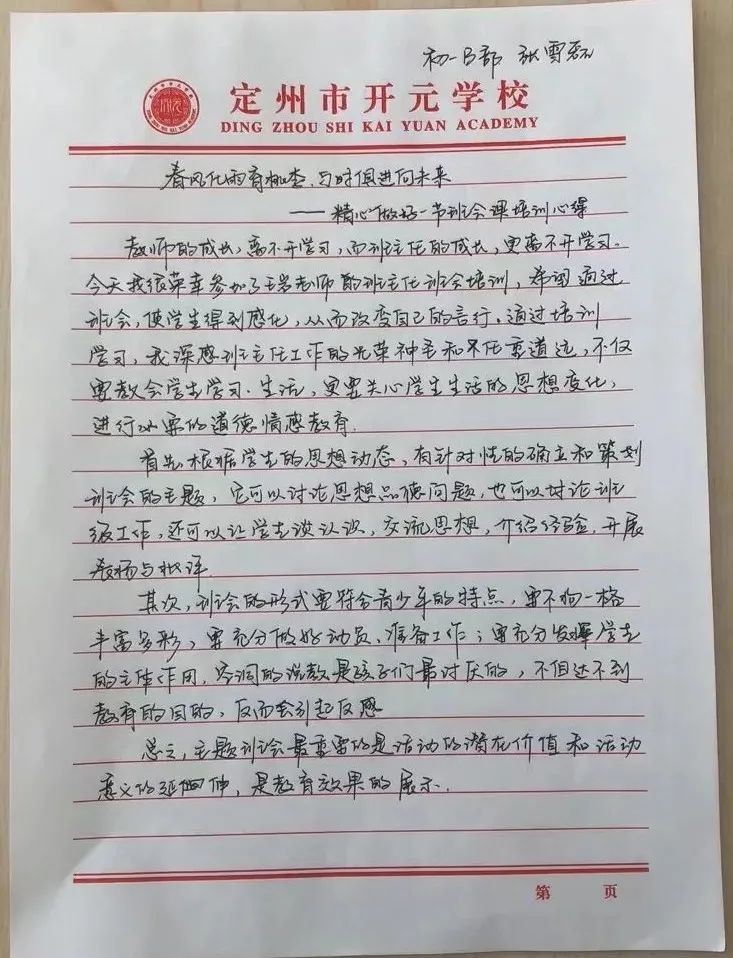 初一B部 张雪磊
定州市开元学校
DING ZHOU SHI KAI YUAN ACADEMY
春风化雨育桃李,与时俱进向未来
——精心做好一节班会课培训心得
教师的成长,离不开学习,而班主任的成长,更离不开学习。
今天我很荣幸参加了王岩老师的班主任班会培训,希望通过
班会,使学生得到感化,从而改变自己的言行。通过培训
学习,我深感班主任工作的光荣神圣和不任重道远,不仅
要教会学生学习、生活,更要关心学生生活的思想变化,
进行必要的道德情感教育.
首先,根据学生的思想动态,有针对性的确立和策划
班会的主题,它可以讨论思想品德问题,也可以讨论班
级工作,还可以让学生谈认识,交流思想,介绍经验,开展
表扬与批评.
其次,班会的形式要符合青少年的特点,要不拘一格
丰富多彩,要充分做好动员、准备工作;要充分发挥学生
的主体作用,空洞的说教是孩子们最讨厌的,不但达不到
教育的目的,反而会引起反感
总之,主题班会最重要的是活动的潜在价值和活动
意义的延伸,是教育效果的展示.
第 页